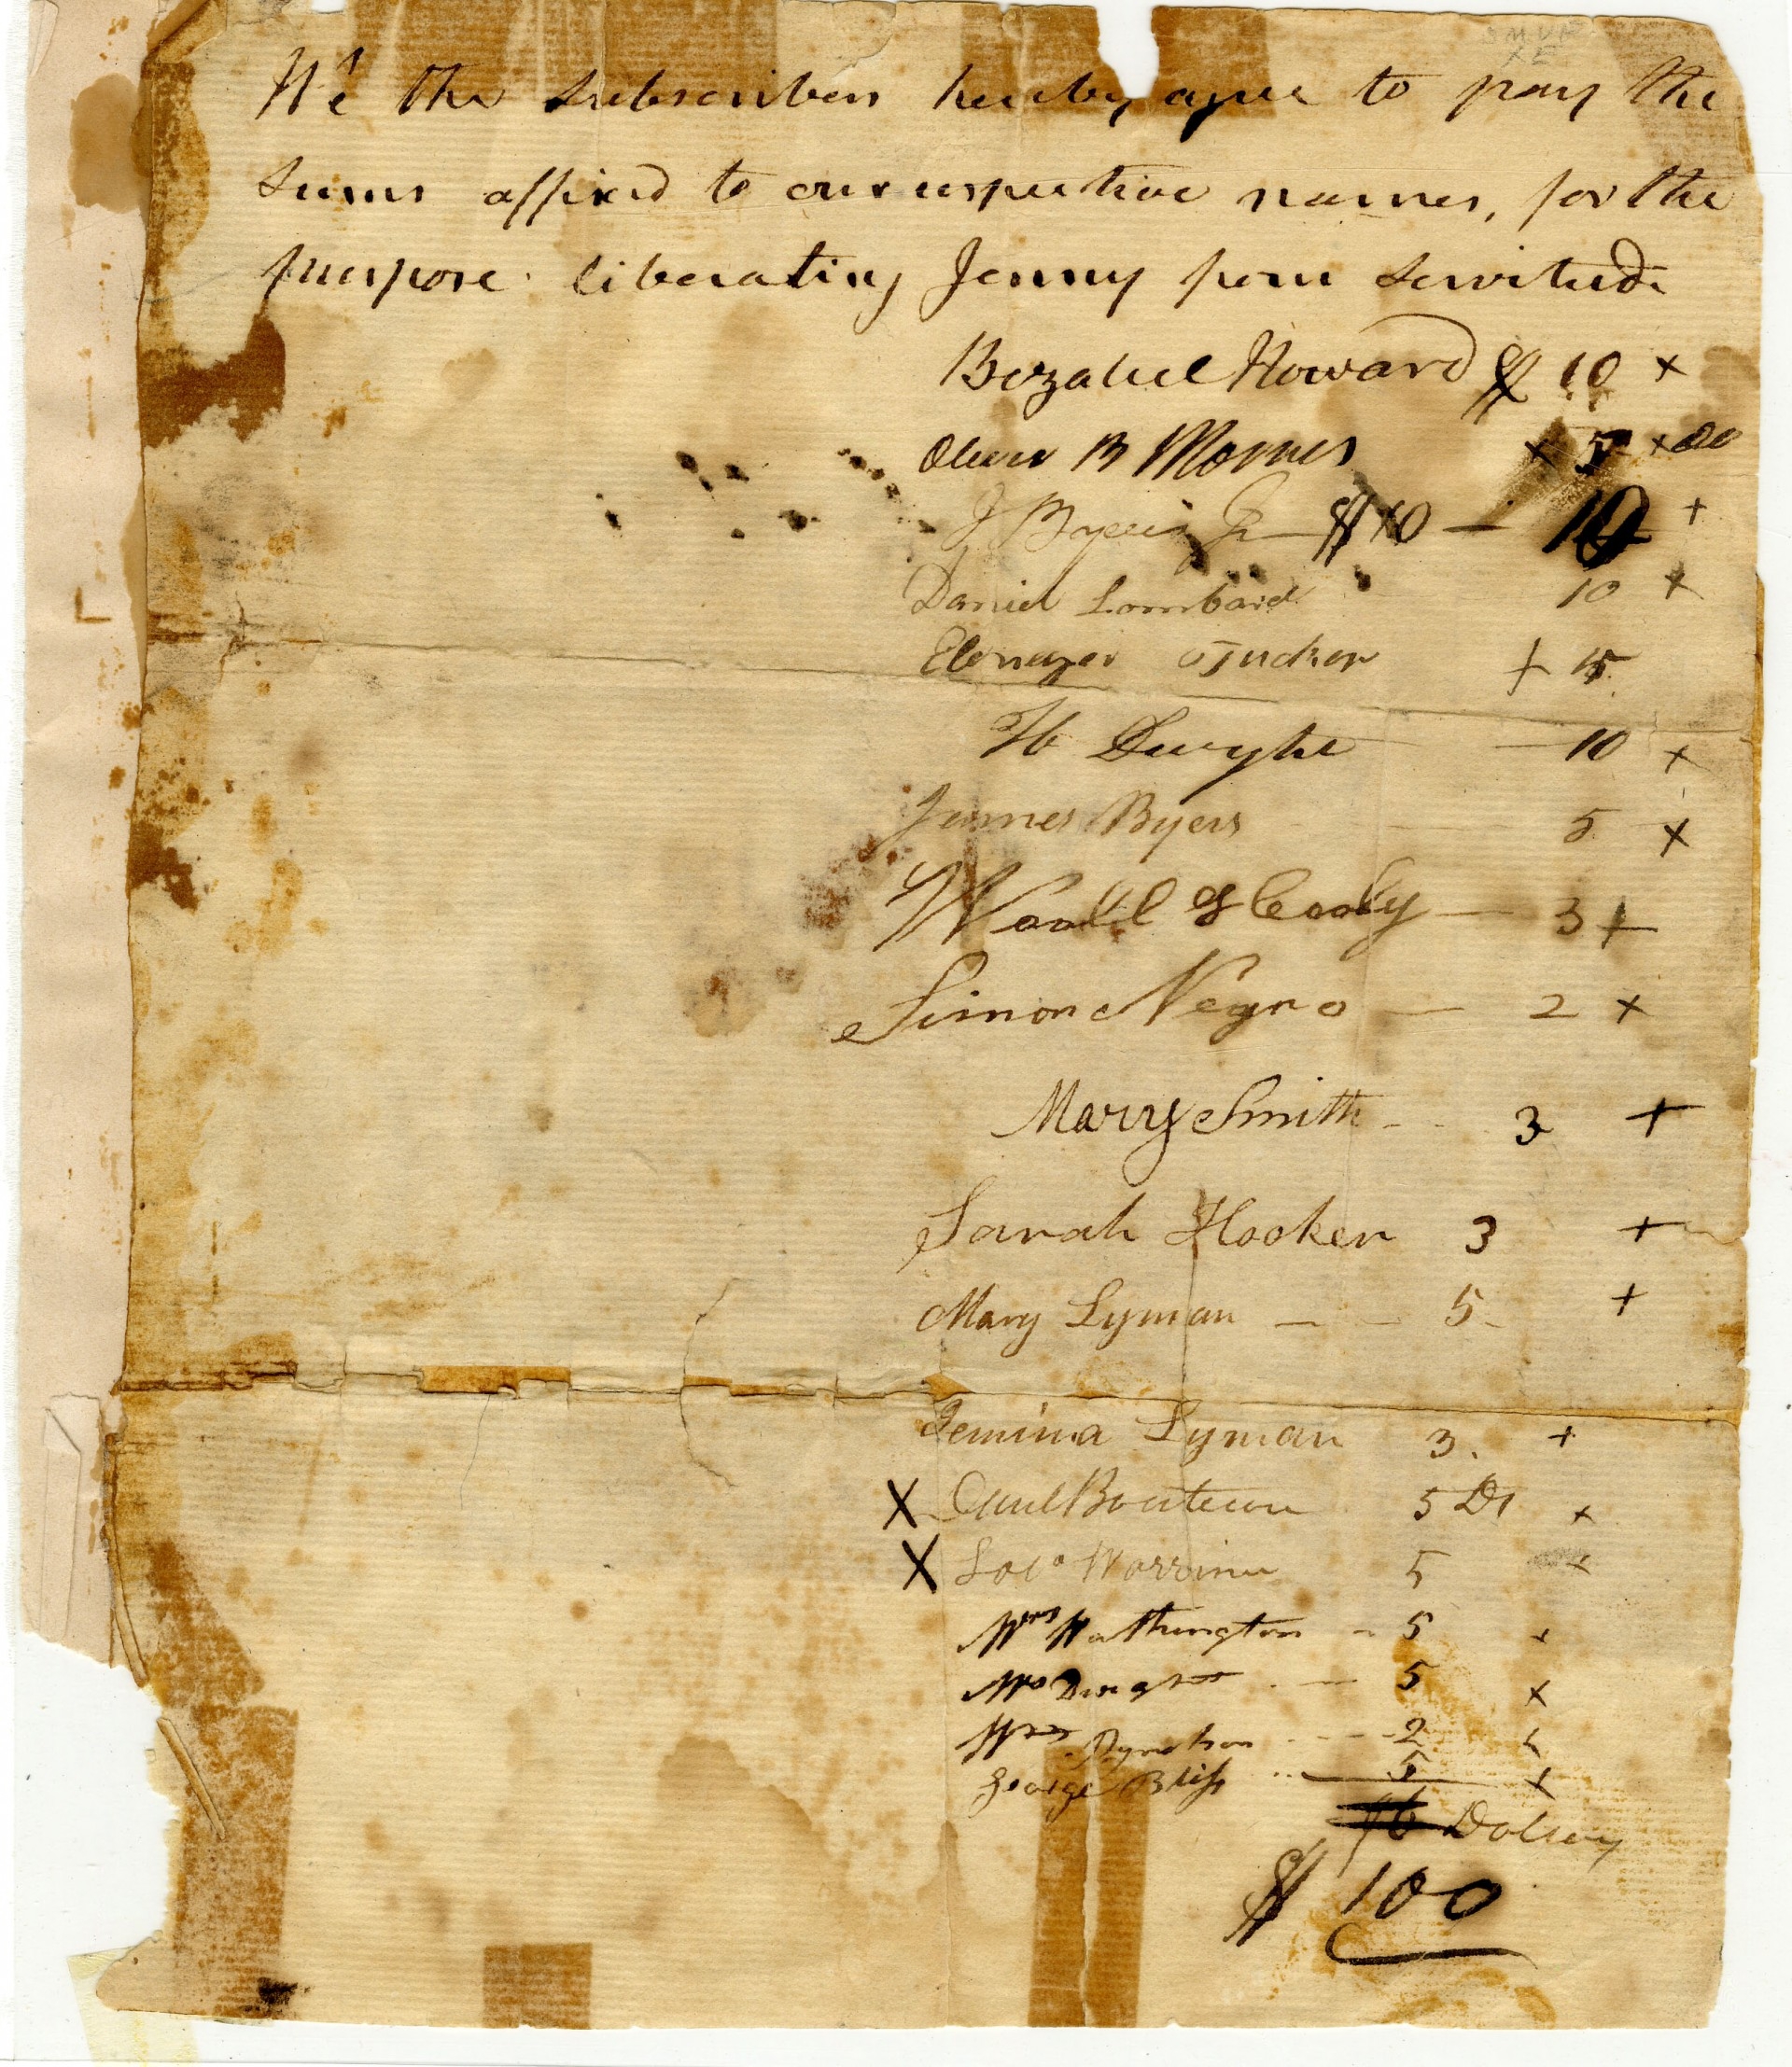 We the subscribers hereby agree to pay the
sums affixed to our respective names, for the
purpose liberating Jenny from servitude
Bezaleel Howard $ 10 x
Oliver B Morris x 5 x
J Byers Jr — $10 — 10 +
Daniel Lombard 10 x
Ebenezer Tucker + 5
Js Dwight — 10 x
James Byers 5 x
& Cooley — 3 +
Simon Negro — 2 x
Mary Smith 3 +
Sarah Hooker 3 +
Mary Lyman — — 5 +
Jemima Lyman 3. +
X Bontecou 5 Ds x
X Sol° Warriner 5 x
Mrs Wathington – 5 x
Mrs Dwight — 5 x
Mrs Pynchon 2 x
George Bliss 5 x
$ 100